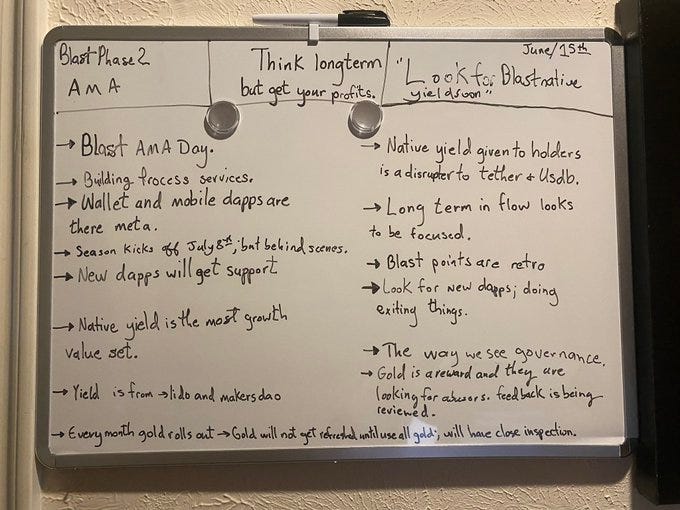 Blast Phase 2
AMA
Think longterm
but get your profits.
June/15th
"Look for Blast native
yield soon"
→ Blast AMA Day.
→ Building frocess services.
→ Wallet and mobile dapps are
there meta.
→ Season kicks off July 8st, but behind scenes.
→ New dapps will get support
→ Native yield is the most growth
value set.
→ Yield is from → lido and makersdao
→ Native yield given to holders
is a disrupter to tether & Usdb.
→ Long term in flow looks
to be focused.
→ Blast points are retro
→ Look for new dapps; doing
exiting things.
→ The way we see governance.
→ Gold is a reward and they are
looking for abusors. feedback is being
reviewed.
→ Every month gold rolls out → Gold will not get refreshed, until use all gold; will have close inspection.